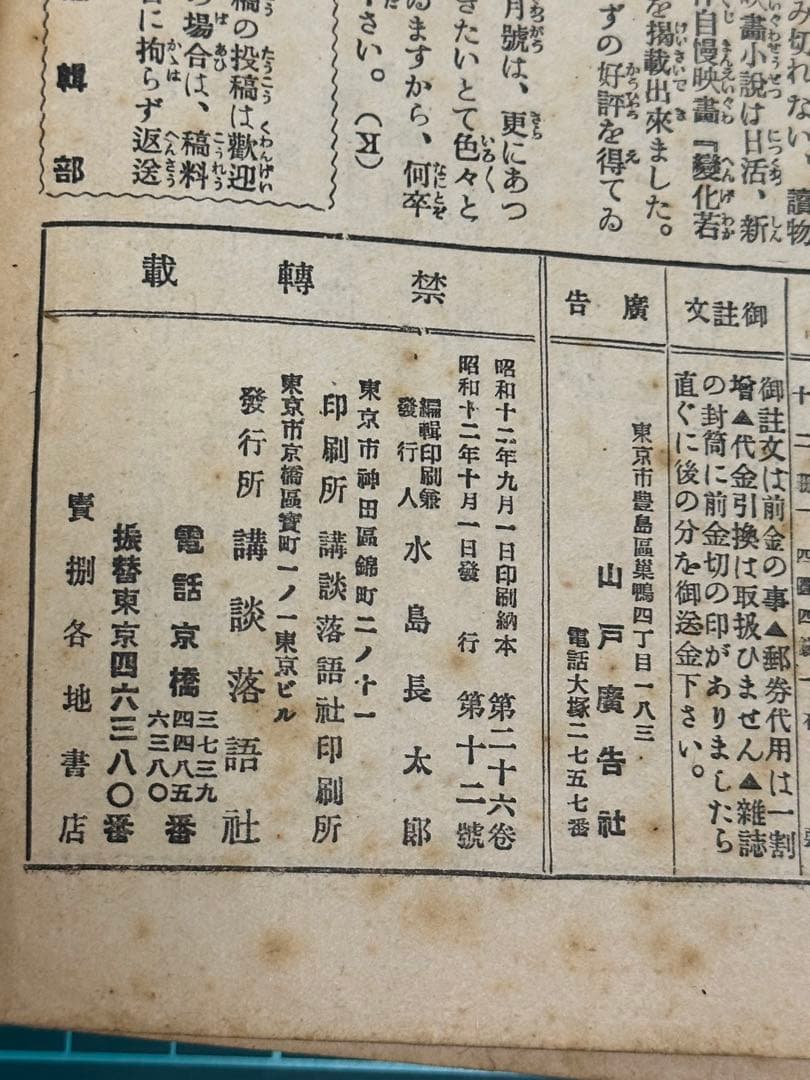 み切れない、讀物
映畫小說は日活、新
自慢映畫『變化若
を揭載出來ました。
ずの好評を得てゐ
月號は、更にあつ
きたいとて色々と
ゐますから、何卒
さい。(K)
稿の投稿は歡迎
場合は、稿料
に拘らず返送
輯部
御註文
御註文は前金の事▲郵券代用は一割
增▲代金引換は取扱ひません▲雜誌
の封筒に前金切の印がありましたら
直ぐに後の分を御送金下さい。
廣告
東京市豊島區巢鴨四丁目一八三
山戸廣告社
電話大塚二七五七番
禁轉載
昭和十二年九月一日印刷納本 第二十六卷
昭和十二年十月一日發行 第十二號
編輯印刷兼
發行人 水島長太郎
東京市神田區錦町二ノ十一
印刷所 講談落語社印刷所
東京市京橋區寶町一ノ一東京ビル
發行所 講談落語社
電話京橋 三七三九 四四八五 六三八〇 番
振替東京四六三八〇番
賣捌各地書店